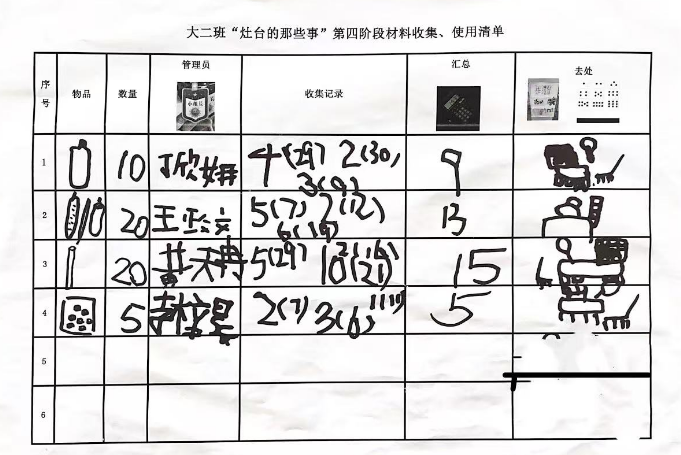 大二班“灶台的那些事”第四阶段材料收集、使用清单
序号 物品 数量 管理员 收集记录 汇总 去处
1 10 丁欣妍 4(29) 2(30) 3(9) 9
2 20 王 5(7) 2(12) 6(19) 13
3 20 黄天冉 5(29) 10(21) 15
4 5 2(7) 3(6) 5
5
6